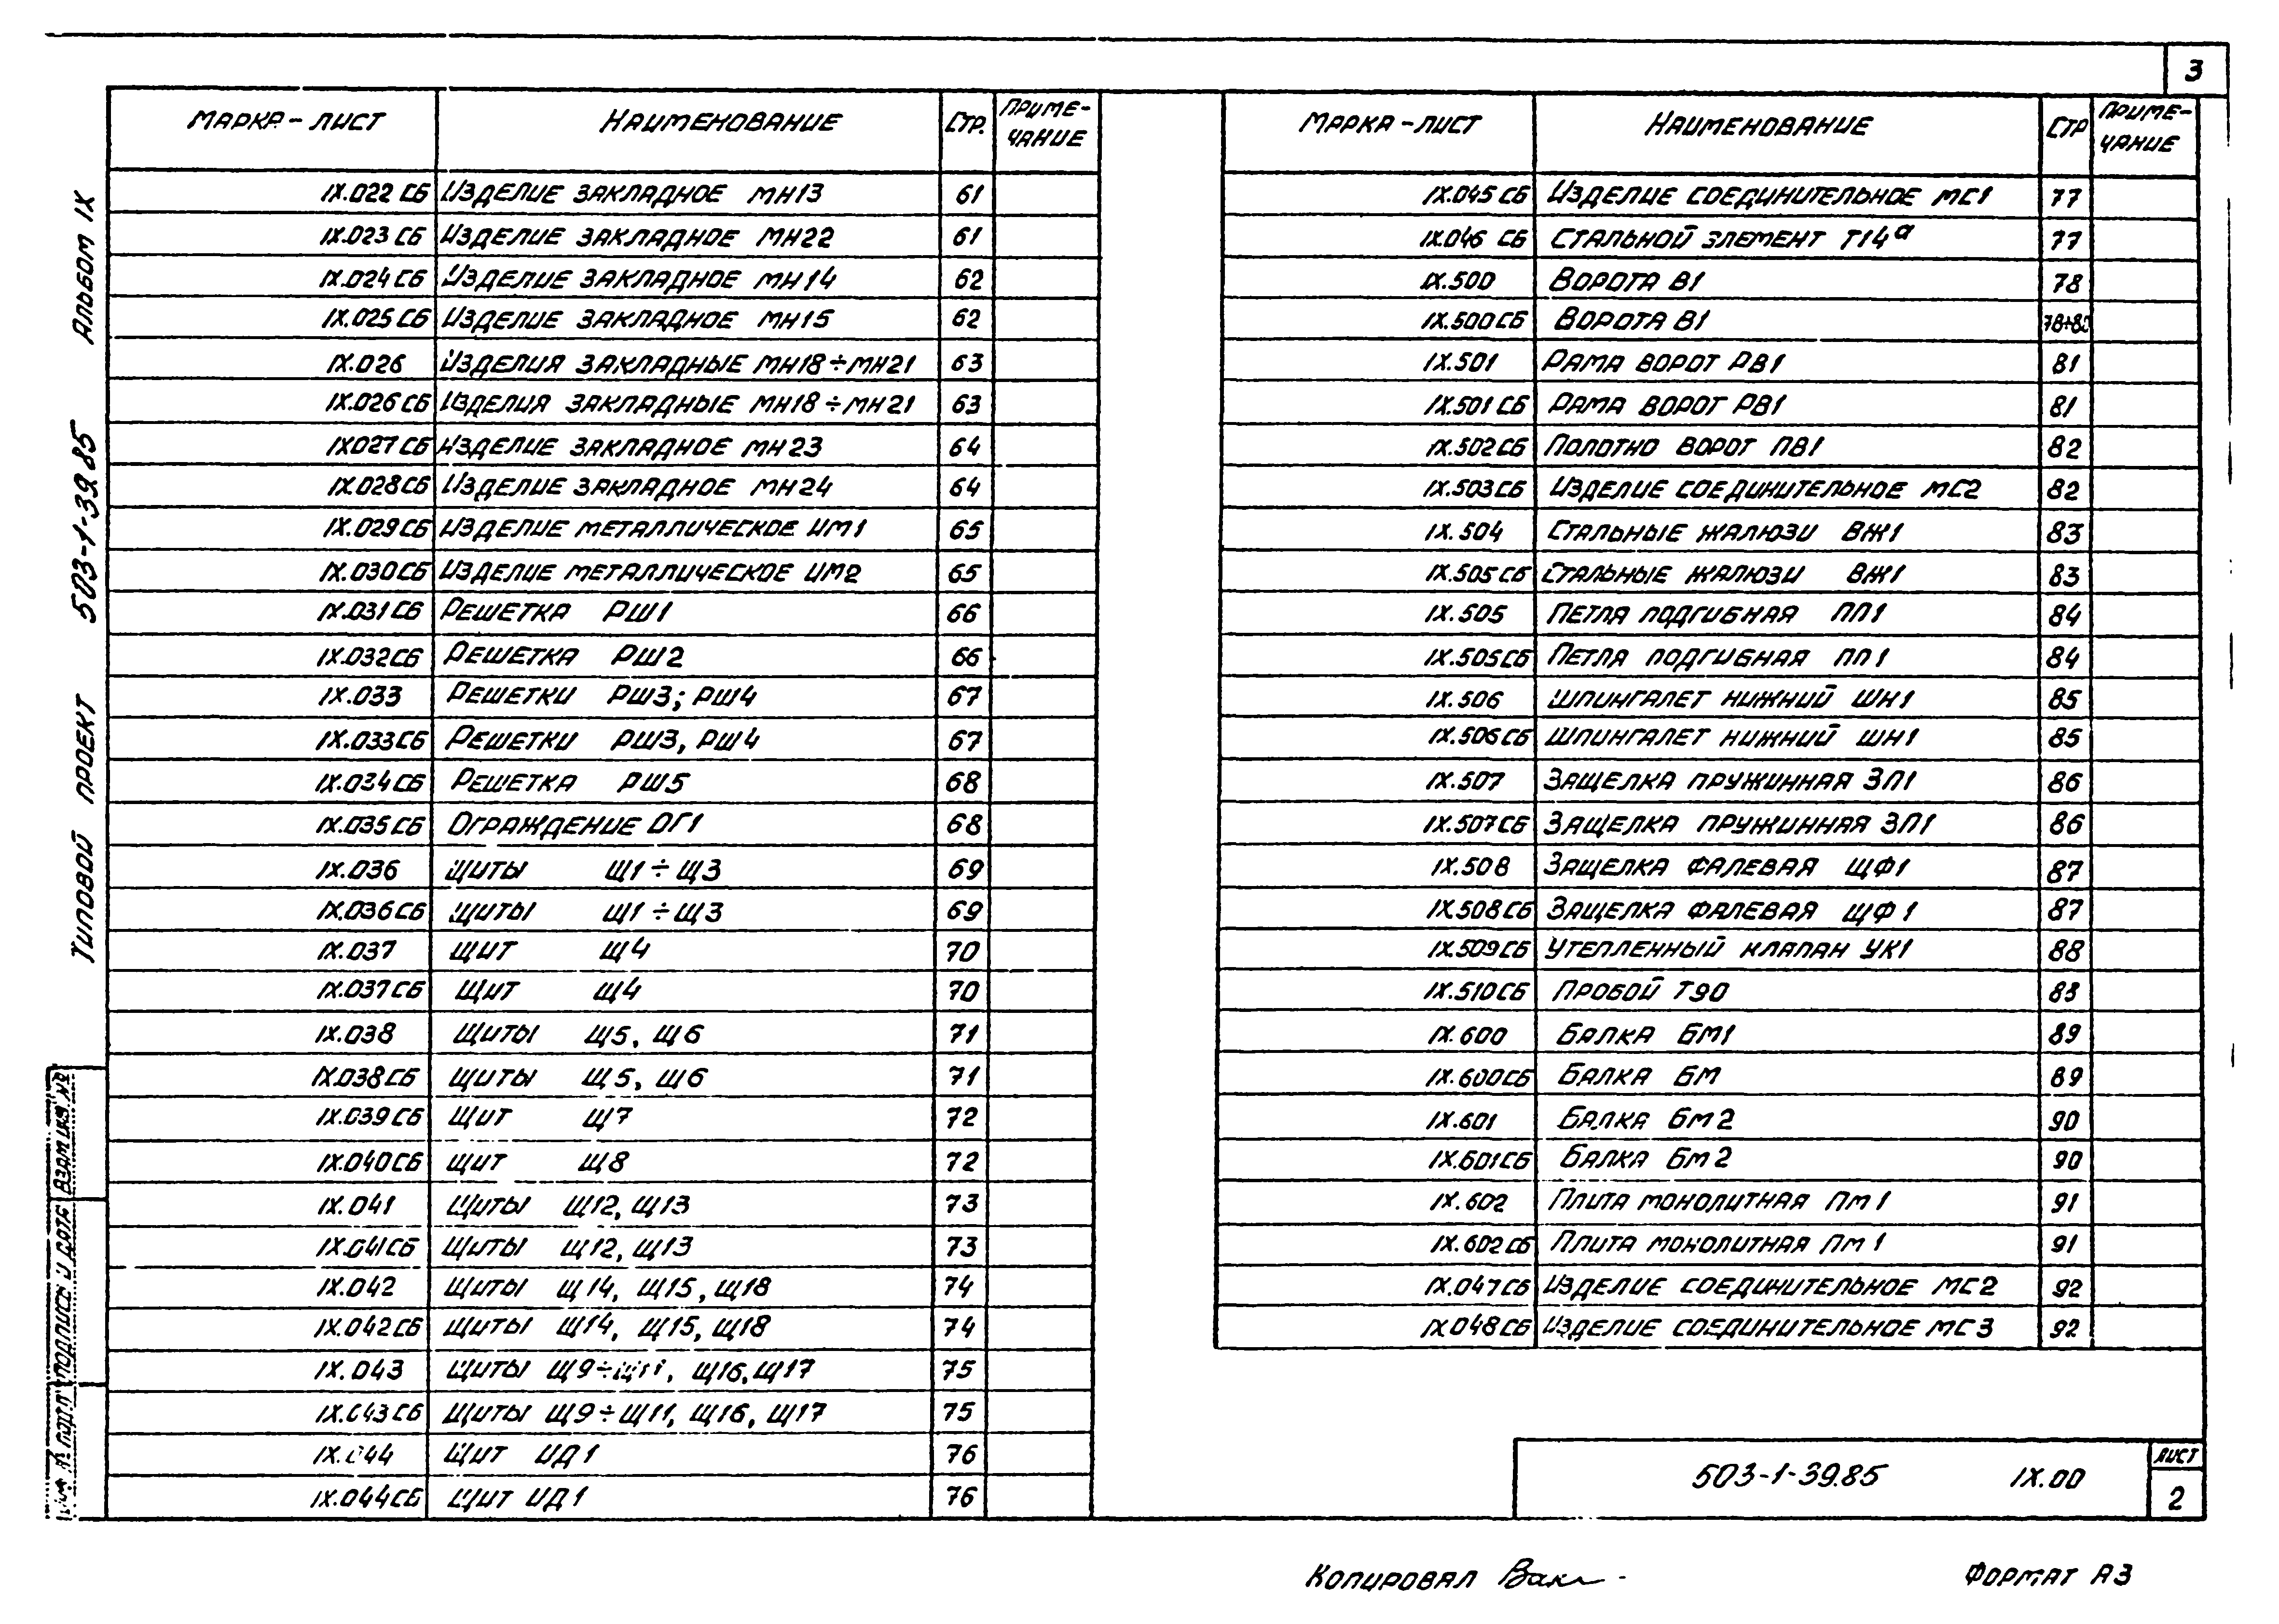 3
МАРКА - ЛИСТ НАИМЕНОВАНИЕ СТР. ПРИМЕ-
ЧАНИЕ
IX.022 СБ ИЗДЕЛИЕ ЗАКЛАДНОЕ МН13 61
IX.023 СБ ИЗДЕЛИЕ ЗАКЛАДНОЕ МН22 61
IX.024 СБ ИЗДЕЛИЕ ЗАКЛАДНОЕ МН14 62
IX.025 СБ ИЗДЕЛИЕ ЗАКЛАДНОЕ МН15 62
IX.026 ИЗДЕЛИЯ ЗАКЛАДНЫЕ МН18÷МН21 63
IX.026 СБ ИЗДЕЛИЯ ЗАКЛАДНЫЕ МН18÷МН21 63
IX027 СБ ИЗДЕЛИЕ ЗАКЛАДНОЕ МН23 64
IX.028 СБ ИЗДЕЛИЕ ЗАКЛАДНОЕ МН24 64
IX.029 СБ ИЗДЕЛИЕ МЕТАЛЛИЧЕСКОЕ ИМ1 65
IX.030 СБ ИЗДЕЛИЕ МЕТАЛЛИЧЕСКОЕ ИМ2 65
IX.031 СБ РЕШЕТКА РШ1 66
IX.032 СБ РЕШЕТКА РШ2 66
IX.033 РЕШЕТКИ РШ3; РШ4 67
IX.033 СБ РЕШЕТКИ РШ3, РШ4 67
IX.034 СБ РЕШЕТКА РШ5 68
IX.035 СБ ОГРАЖДЕНИЕ ОГ1 68
IX.036 ЩИТЫ Щ1÷Щ3 69
IX.036 СБ ЩИТЫ Щ1÷Щ3 69
IX.037 ЩИТ Щ4 70
IX.037 СБ ЩИТ Щ4 70
IX.038 ЩИТЫ Щ5, Щ6 71
IX.038 СБ ЩИТЫ Щ5, Щ6 71
IX.039 СБ ЩИТ Щ7 72
IX.040 СБ ЩИТ Щ8 72
IX.041 ЩИТЫ Щ12, Щ13 73
IX.041 СБ ЩИТЫ Щ12, Щ13 73
IX.042 ЩИТЫ Щ14, Щ15, Щ18 74
IX.042 СБ ЩИТЫ Щ14, Щ15, Щ18 74
IX.043 ЩИТЫ Щ9÷Щ11, Щ16, Щ17 75
IX.043 СБ ЩИТЫ Щ9÷Щ11, Щ16, Щ17 75
IX.044 ЩИТ ИД1 76
IX.044 СБ ЩИТ ИД1 76
МАРКА - ЛИСТ НАИМЕНОВАНИЕ СТР ПРИМЕ-
ЧАНИЕ
IX.045 СБ ИЗДЕЛИЕ СОЕДИНИТЕЛЬНОЕ МС1 77
IX.046 СБ СТАЛЬНОЙ ЭЛЕМЕНТ Т14а 77
IX.500 ВОРОТА В1 78
IX.500 СБ ВОРОТА В1 78÷80
IX.501 РАМА ВОРОТ РВ1 81
IX.501 СБ РАМА ВОРОТ РВ1 81
IX.502 СБ ПОЛОТНО ВОРОТ ПВ1 82
IX.503 СБ ИЗДЕЛИЕ СОЕДИНИТЕЛЬНОЕ МС2 82
IX.504 СТАЛЬНЫЕ ЖАЛЮЗИ ВЖ1 83
IX.505 СБ СТАЛЬНЫЕ ЖАЛЮЗИ ВЖ1 83
IX.505 ПЕТЛЯ ПОДГИБНАЯ ПП1 84
IX.505 СБ ПЕТЛЯ ПОДГИБНАЯ ПП1 84
IX.506 ШПИНГАЛЕТ НИЖНИЙ ШН1 85
IX.506 СБ ШПИНГАЛЕТ НИЖНИЙ ШН1 85
IX.507 ЗАЩЕЛКА ПРУЖИННАЯ ЗП1 86
IX.507 СБ ЗАЩЕЛКА ПРУЖИННАЯ ЗП1 86
IX.508 ЗАЩЕЛКА ФАЛЕВАЯ ЩФ1 87
IX.508 СБ ЗАЩЕЛКА ФАЛЕВАЯ ЩФ1 87
IX.509 СБ УТЕПЛЕННЫЙ КЛАПАН УК1 88
IX.510 СБ ПРОБОЙ Т90 83
IX.600 БАЛКА БМ1 89
IX.600 СБ БАЛКА БМ 89
IX.601 БАЛКА БМ2 90
IX.601 СБ БАЛКА БМ2 90
IX.602 ПЛИТА МОНОЛИТНАЯ ПМ1 91
IX.602 СБ ПЛИТА МОНОЛИТНАЯ ПМ1 91
IX.047 СБ ИЗДЕЛИЕ СОЕДИНИТЕЛЬНОЕ МС2 92
IX.048 СБ ИЗДЕЛИЕ СОЕДИНИТЕЛЬНОЕ МС3 92
503-1-39.85 IX.00
ЛИСТ
2
КОПИРОВАЛ
ФОРМАТ А3
ТИПОВОЙ ПРОЕКТ 503-1-39.85 АЛЬБОМ IX
ПОДП. ПОДПИСЬ И ДАТА ВЗАМ. ИНВ. №